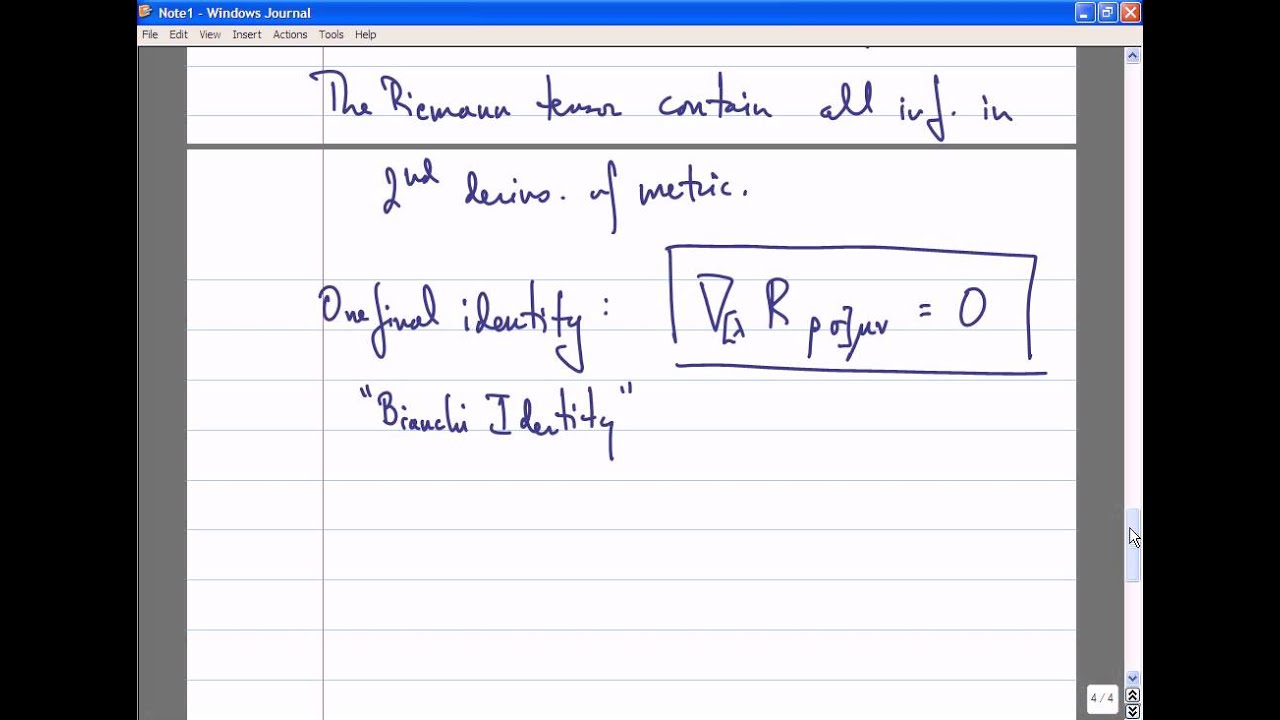 Note1 - Windows Journal
File Edit View Insert Actions Tools Help
The Riemann tensor contain all inf. in
2nd derivs. of metric.
One final identity : ∇[λ R ρσ]μν = 0
"Bianchi Identity"
4 / 4